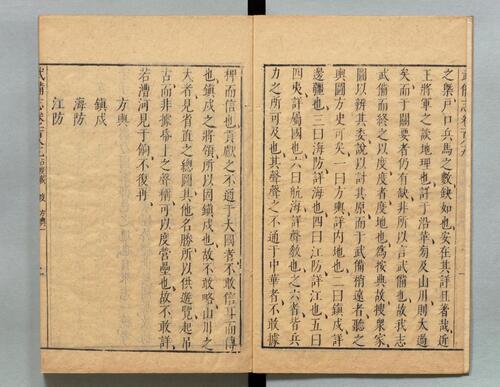 武備志卷一百八十九
之槩戶口兵馬之數缺如也安在其詳且者哉近
王將軍之談地理也詳于沿革芻及山川則太過
矣而于關要者仍有缺非所以言武備也故我志
武備而終之以度度者度地也為按典故搜衆家
圖以辨其委說以討其原而于武備稍遠者聽之
輿圖方史可矣一曰方輿詳內地也二曰鎮戍詳
邊疆也三曰海防詳海也四曰江防詳江也五曰
四夷詳屬國也六曰航海詳聲敎也之六者皆兵
力之所可及也其聲聲之不通于中華者不敢據
稗而信也貢獻之不通于大國者不敢信耳而傳
也鎮戍之將領所以固鎮戍也故不敢略山川之
大者見省直之總圖其他名勝所以供遊覽起弔
古而非據播上之聲備可以度營壘也故不敢詳
若漕河見于餉不復再
方輿
鎮戍
海防
江防